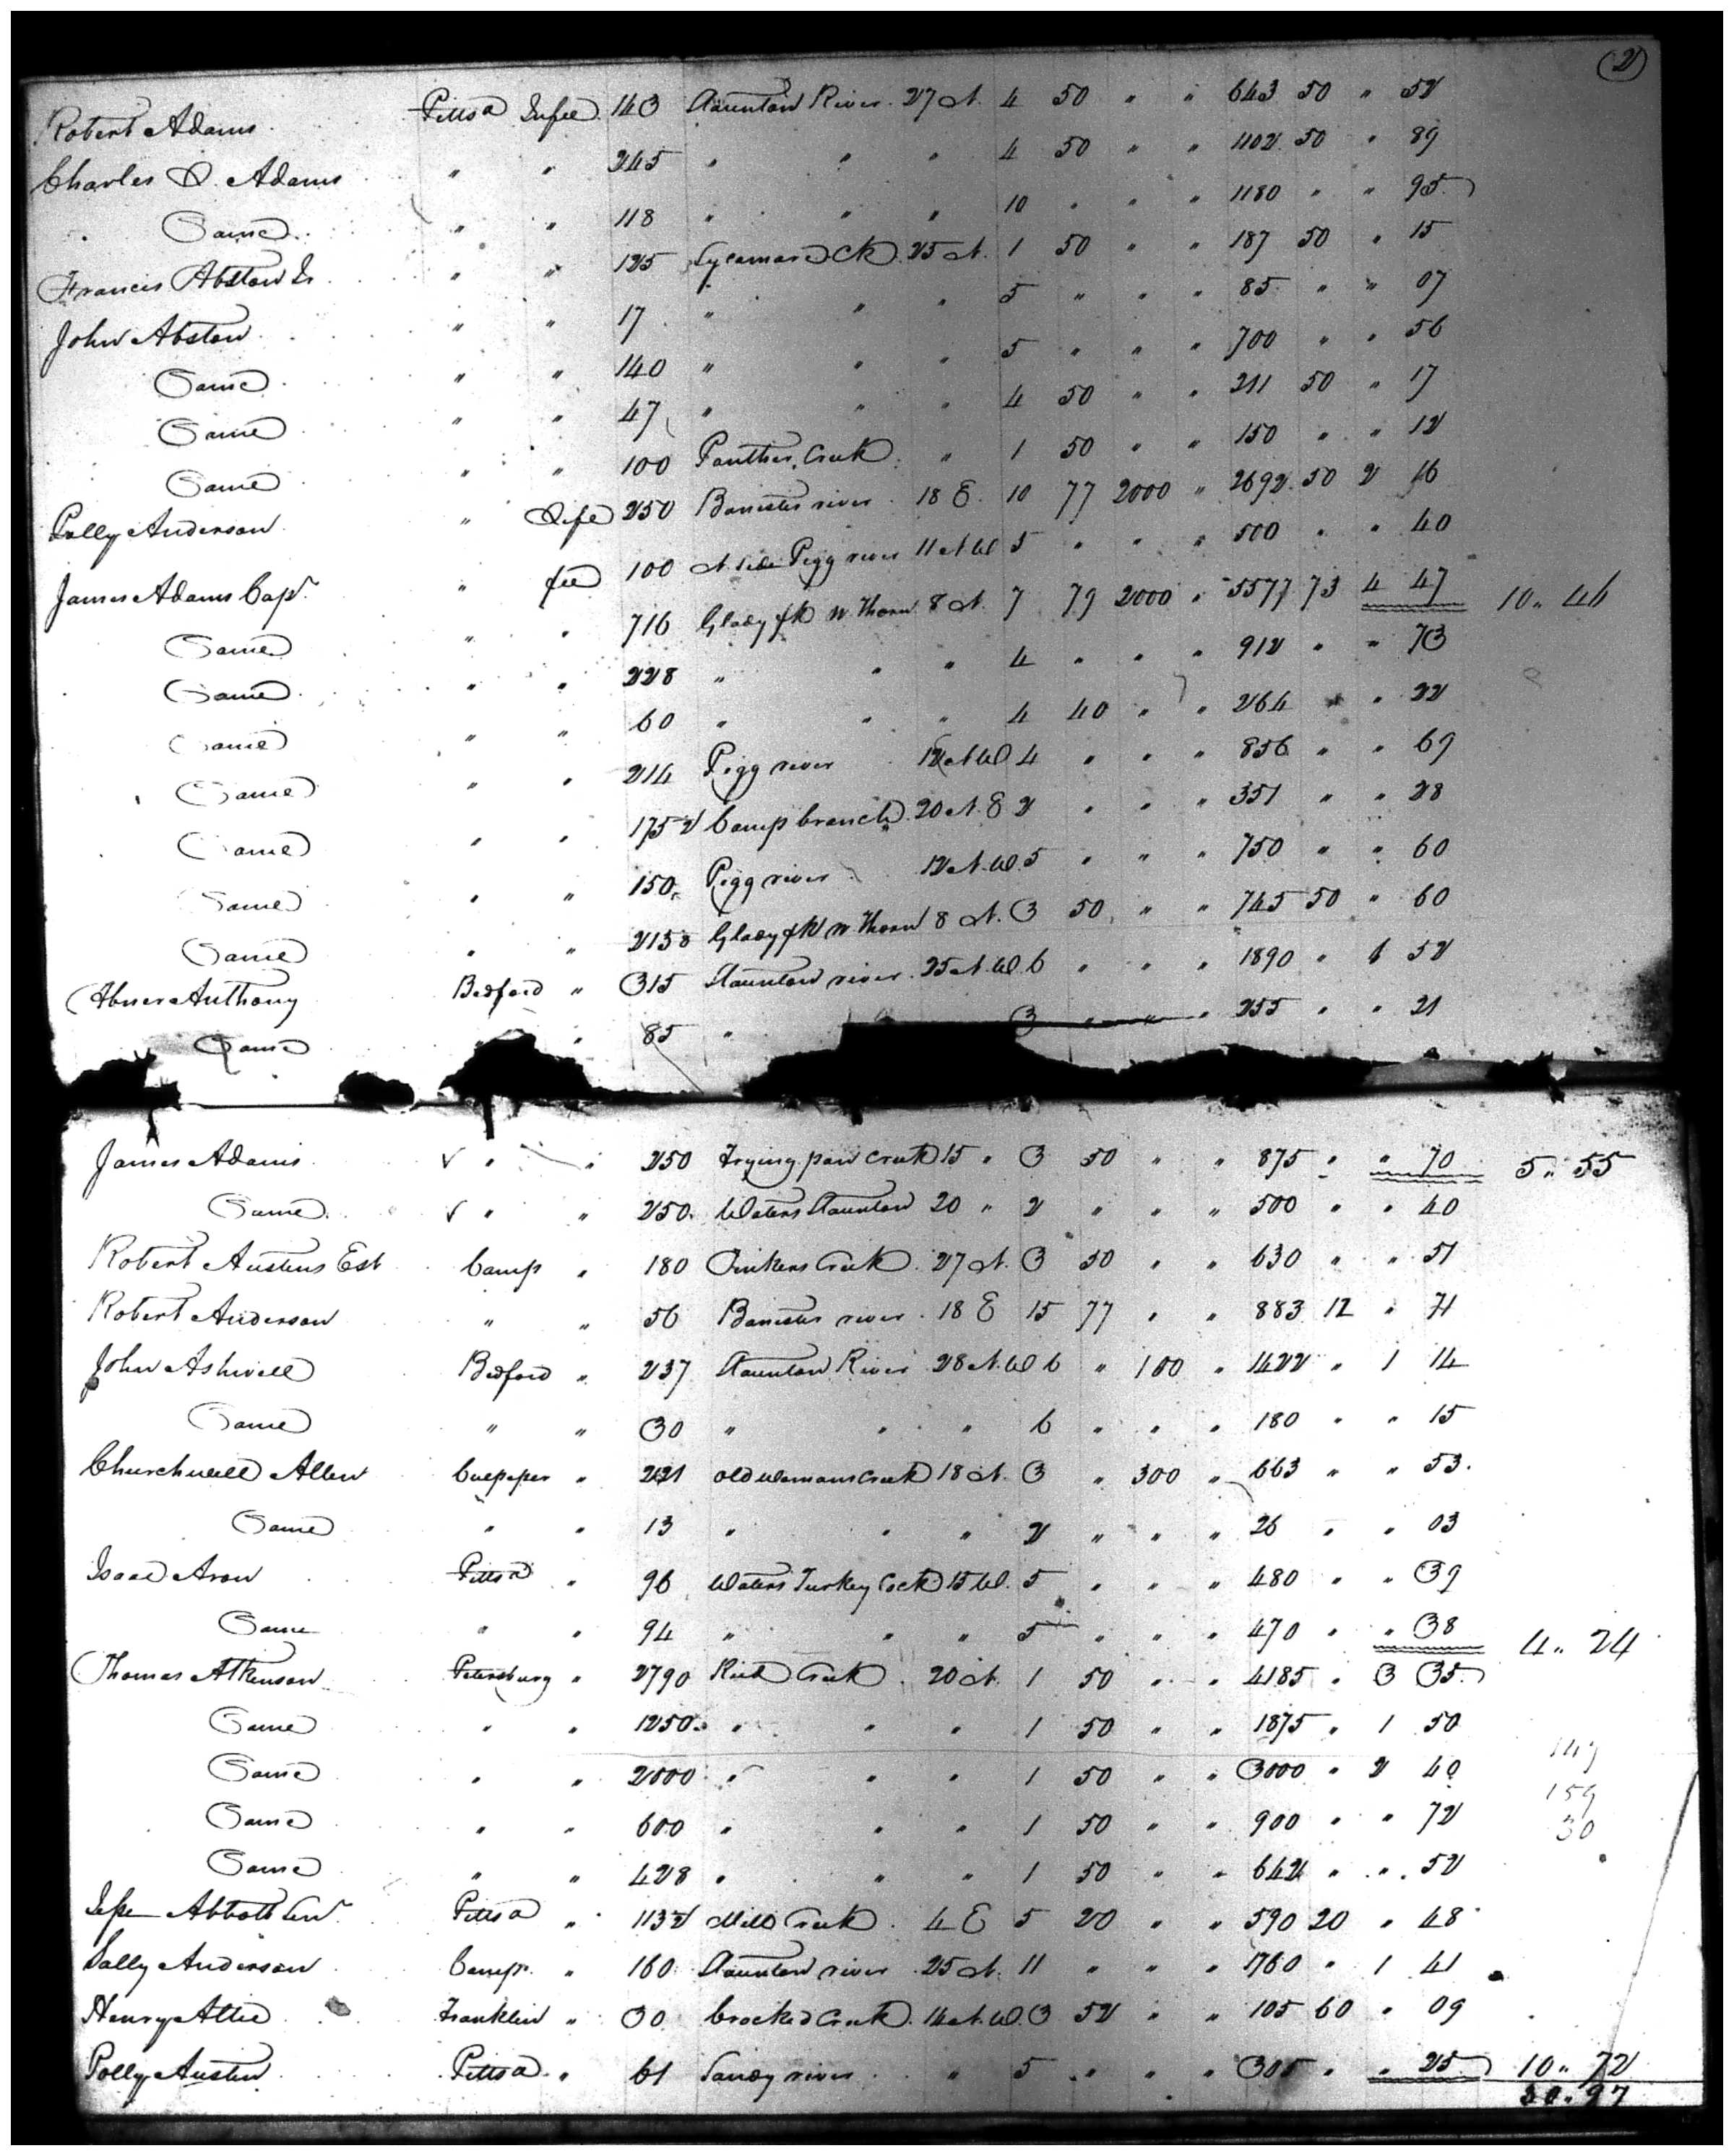 (2)
Robert Adams Pittsa Infee 143 Staunton River 27 N. 4 50 " " 643 50 " 52
Charles L. Adams " " 245 " " " 4 50 " " 1102 50 " 89
Same " " 118 " " " 10 " " " 1180 " " 95
Francis Abston Sr " " 125 Sycamore Ck 25 N. 1 50 " " 187 50 " 15
John Abston " " 17 " " " 5 " " " 85 " " 07
Same " " 140 " " " 5 " " " 700 " " 56
Same " " 47 " " " 4 50 " " 211 50 " 17
Same " " 100 Panther Creek " 1 50 " " 150 " " 12
Polly Anderson " Life 250 Banister river 18 E. 10 77 2000 " 2692 50 2 16
James Adams Capt. " fee 100 N. side Pigg river 11 N W 5 " " " 500 " " 40
Same " " 716 Glady fk W Thorn 8 N. 7 79 2000 " 5577 73 4 47 10 " 46
Same " " 228 " " " 4 " " " 912 " " 73
Same " " 60 " " " 4 40 " " 264 " " 22
Same " " 214 Pigg river 12 N W 4 " " " 856 " " 69
Same " " 175 2 Camp branch 20 N. E 2 " " " 351 " " 28
Same " " 150 Pigg river 12 N. W. 5 " " " 750 " " 60
Same " " 213 Glady fk W Thorn 8 N. 3 50 " " 745 50 " 60
Abner Anthony Bedford " 315 Staunton river 25 N. W. 6 " " " 1890 " 1 52
Same " 85 " 3 " " " 255 " " 21
James Adams " " 250 Frying pan Creek 15 " 3 50 " " 875 " " 70 5 " 55
Same " " 250 Waters Staunton 20 " 2 " " " 500 " " 40
Robert Austins Est Camp " 180 Creek 27 N. 3 50 " " 630 " " 51
Robert Anderson " " 56 Banister river 18 E 15 77 " " 883 12 " 71
John Ashwell Bedford " 237 Staunton River 28 N. W 6 " 100 " 1422 " 1 14
Same " " 30 " " " 6 " " " 180 " " 15
Churchwell Allen Culpeper " 221 Old Womans Creek 18 N. 3 " 300 " 663 " " 53
Same " " 13 " " " 2 " " " 26 " " 03
Isaac Aron Pittsa " 96 Waters Turkey Cock 15 W. 5 " " " 480 " " 39
Same " " 94 " " " 5 " " " 470 " " 38 4 " 24
Thomas Atkinson Petersburg " 2790 Creek 20 N. 1 50 " " 4185 " 3 35
Same " " 1250 " " " 1 50 " " 1875 " 1 50
Same " " 2000 " " " 1 50 " " 3000 " 2 40
Same " " 600 " " " 1 50 " " 900 " " 72
Same " " 428 " " " 1 50 " " 642 " " 52
Jesse Abbott Pittsa " 113 2 Mill Creek 4 E 5 20 " " 590 20 " 48
Sally Anderson Camp. " 160 Staunton river 25 N. 11 " " " 1760 " 1 41
Henry Atlie Franklin " 30 Crooked Creek 14 N. W. 3 52 " " 105 60 " 09
Polly Austin Pittsa " 61 Sandy river " 5 " " " 305 " " 25 10 " 72
30 " 97